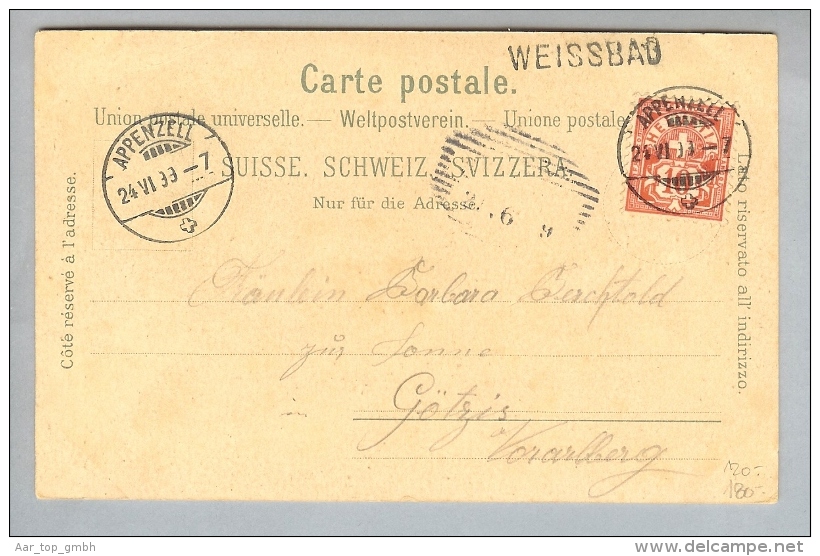 WEISSBAD
Carte postale.
Union postale universelle. — Weltpostverein. — Unione postale
SUISSE. SCHWEIZ. SVIZZERA.
Nur für die Adresse.
APPENZELL
24 VI 99 – 7
APPENZELL
24 VI 99 – 7
HELVETIA
10
6 9
Côté réservé à l'adresse.
Lato riservato all' indirizzo.
Fräulein Barbara Berchtold
zur Sonne
Götzis
Vorarlberg
120.-
180.-
Aar_top_gmbh
delcampe.net